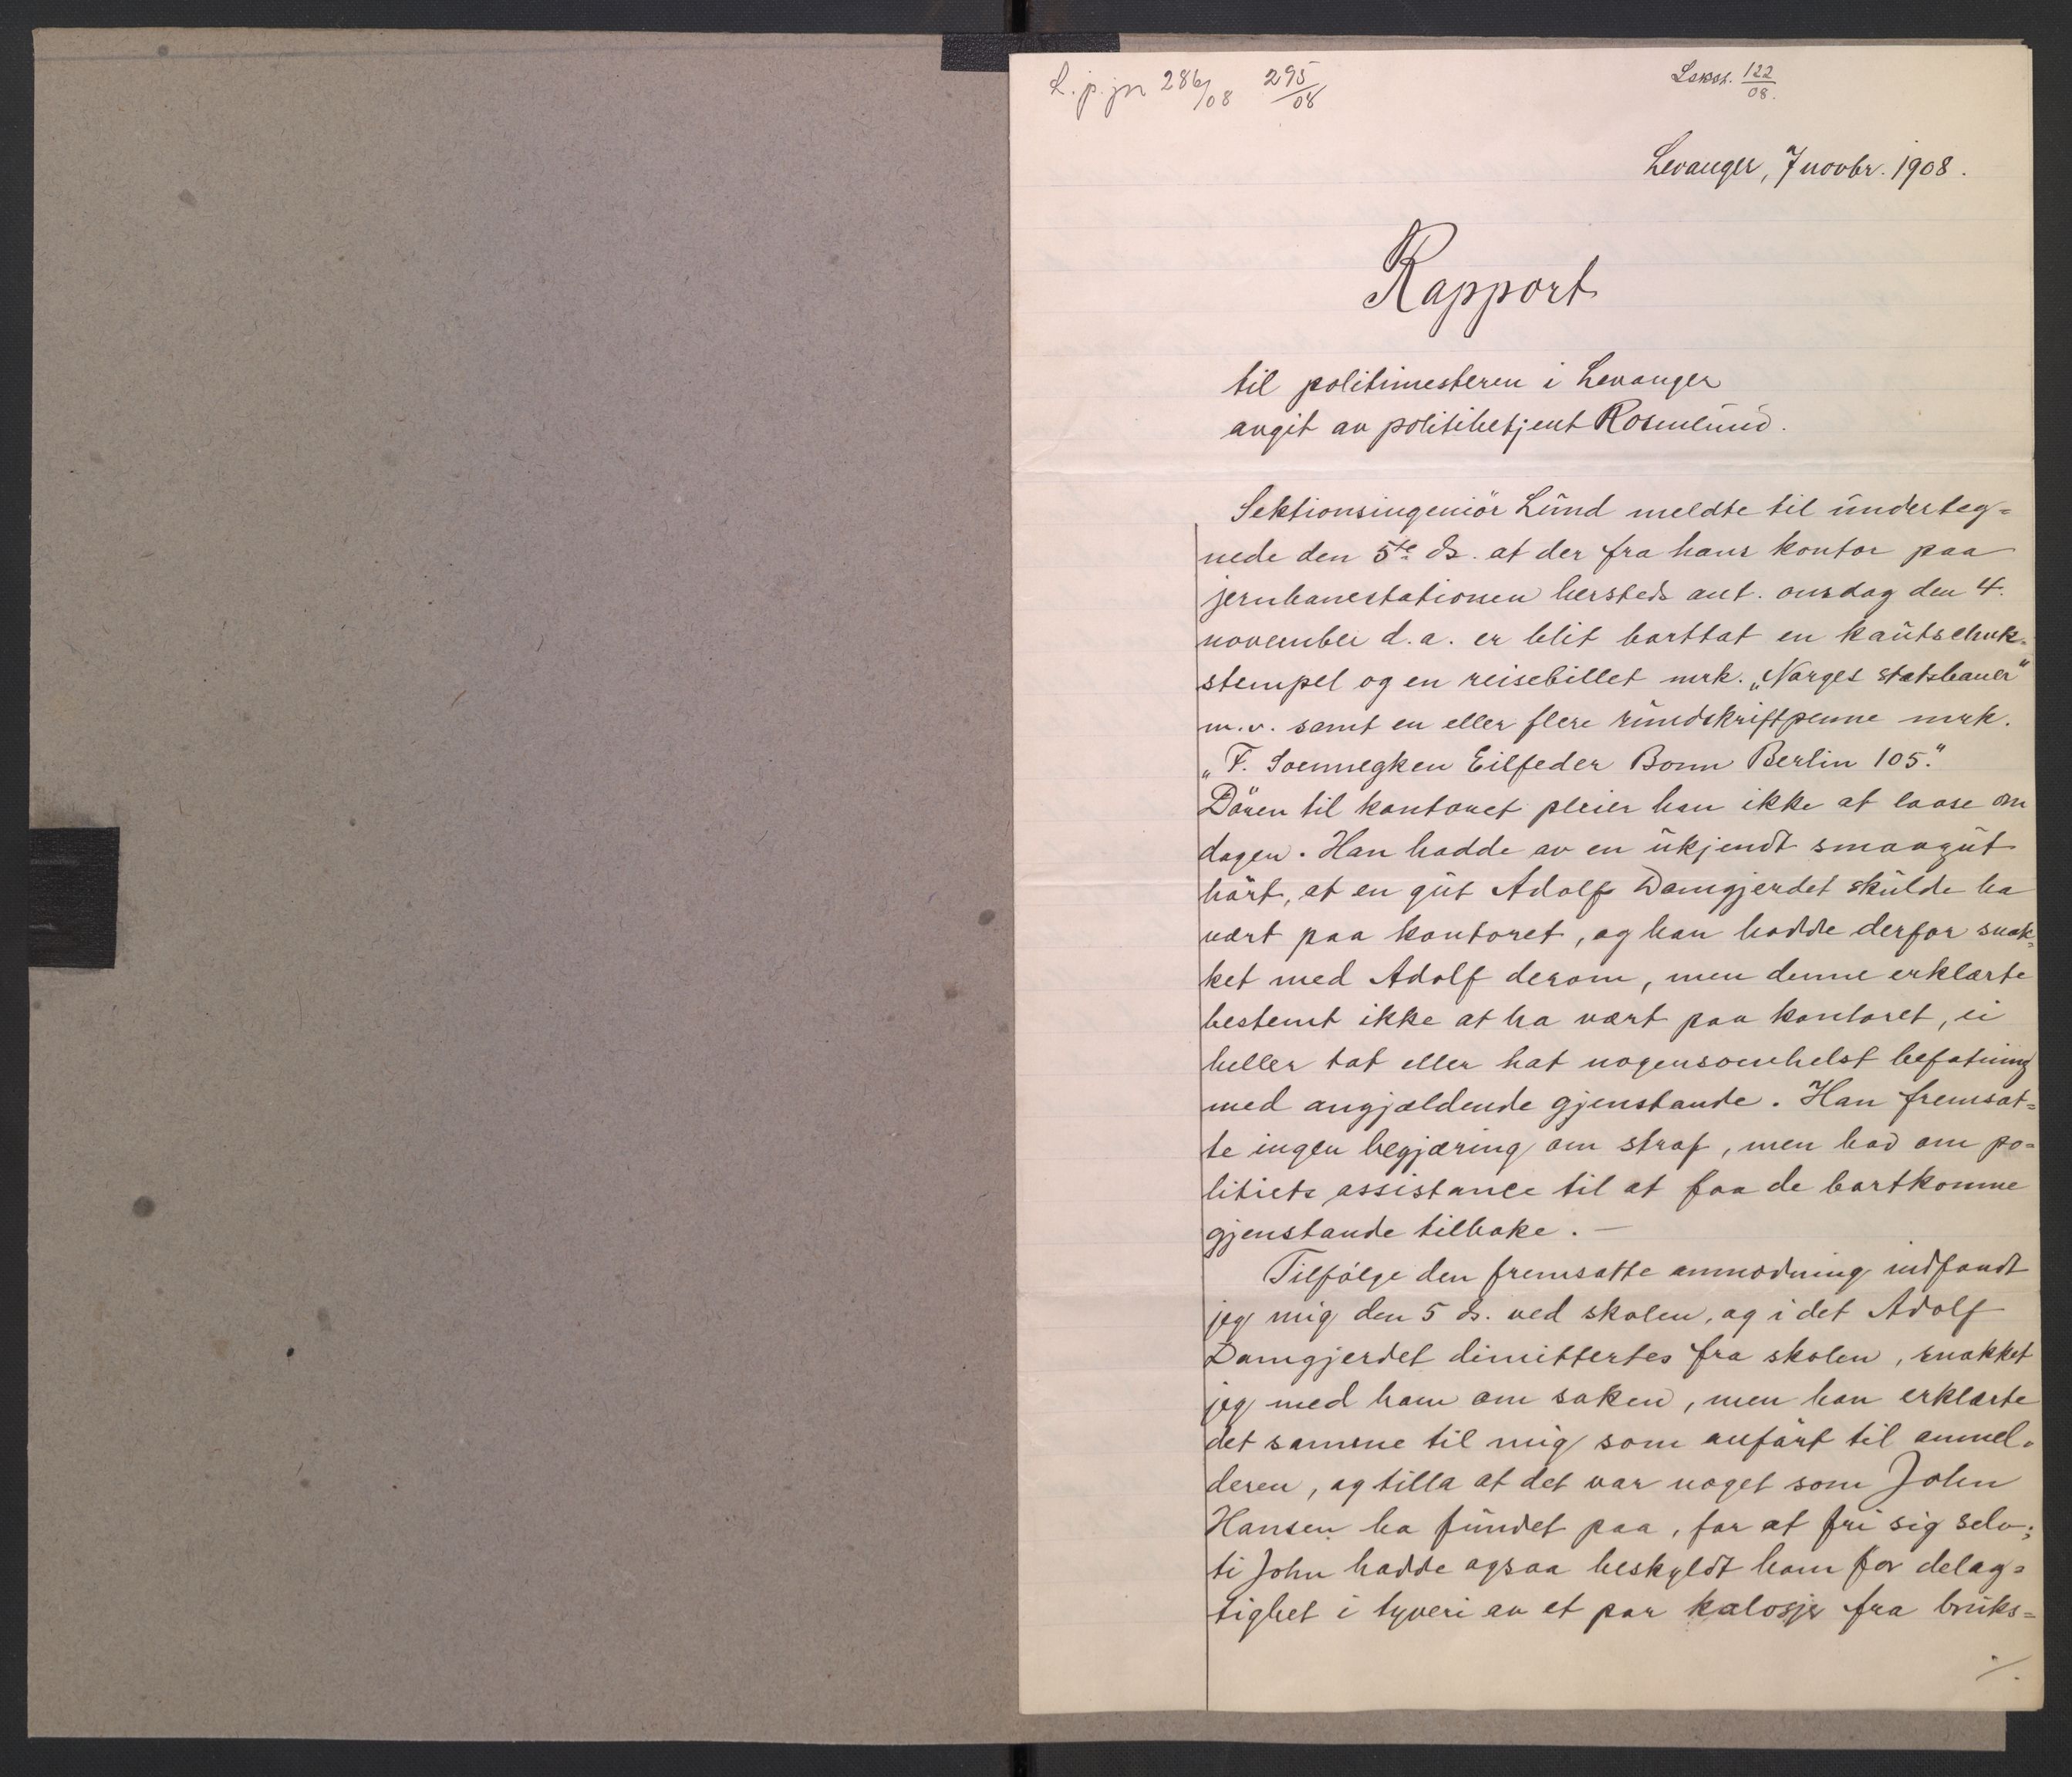 L. p. jn 286/08 295/08
122/08.
Levanger, 7 novbr. 1908.
Rapport
til politimesteren i Levanger
avgit av politibetjent Rosenlund.
Sektionsingeniör Lund meldte til underteg=
nede den 5te ds. at der fra hans kontor paa
jernbanestationen hersteds ant. onsdag den 4.
november d. a. er blit borttat en kautschuk=
stempel og en reisebillet mrk. „Norges Statsbaner"
m. v. samt en eller flere rundskriftpenne mrk.
„F. Soennegken Eilfeder Bonn Berlin 105."
Dören til kontoret pleier han ikke at laase om
dagen. Han hadde av en ukjendt smaagut
hört, at en gut Adolf Damgjerdet skulde ha
vært paa kontoret, og han hadde derfor snak=
ket med Adolf derom, men denne erklærte
bestemt ikke at ha vært paa kontoret, ei
heller tat eller hat nogensomhelst befatning
med angjældende gjenstande. Han fremsat=
te ingen begjæring om straf, men bad om po=
litiets assistance til at faa de bortkomne
gjenstande tilbake. —
Tilfölge den fremsatte anmodning indfandt
jeg mig den 5 ds. ved skolen, og i det Adolf
Damgjerdet dimittertes fra skolen, snakket
jeg med ham om saken, men han erklærte
det samme til mig som anfört til anmel=
deren, og tilla at det var noget som John
Hansen ha fundet paa, for at fri sig selv;
ti John hadde ogsaa beskyldt ham for delag=
tighet i tyveri av et par kalosjer fra bruks=
./.